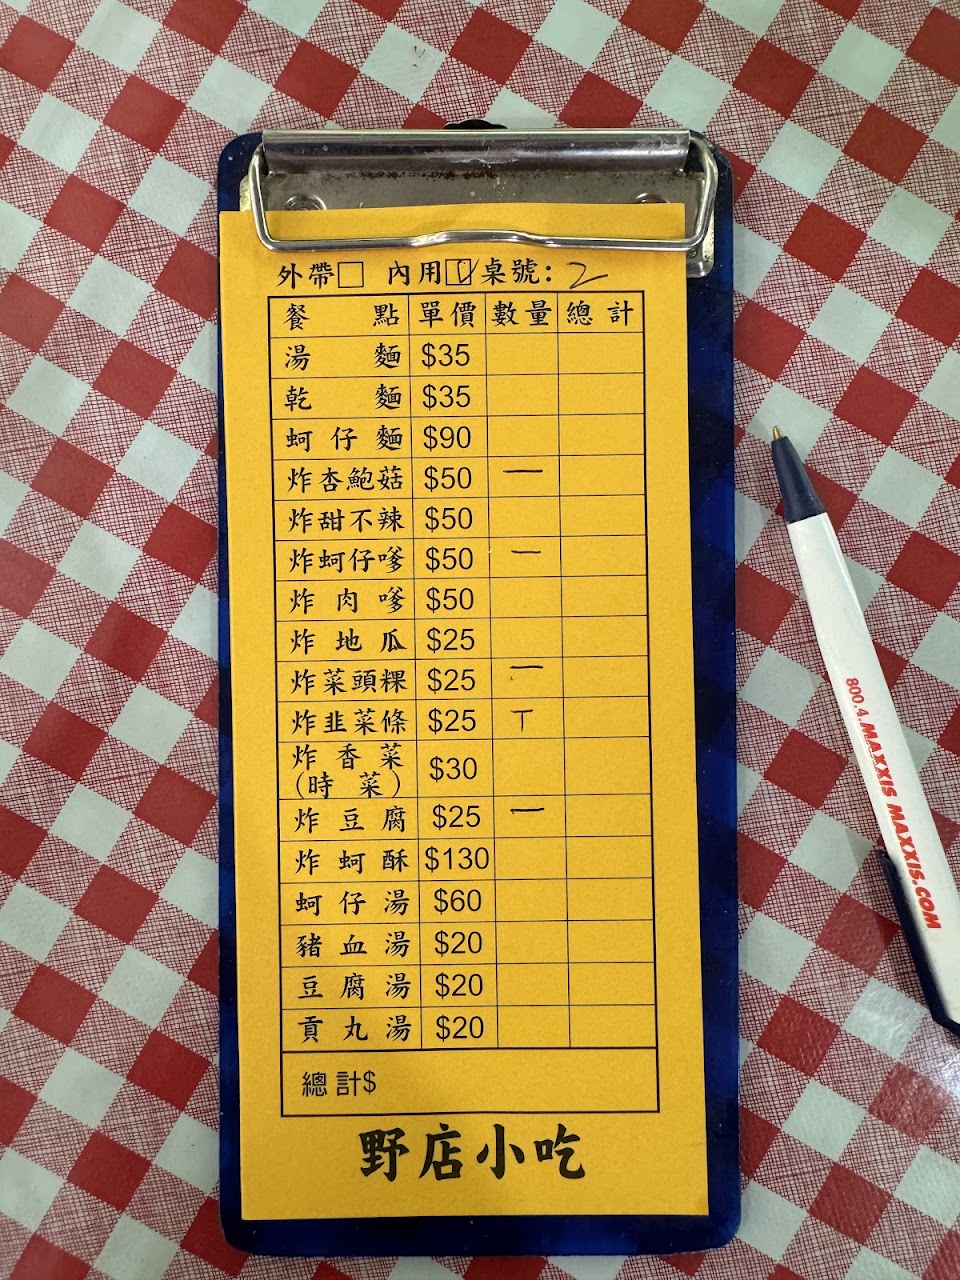 外帶□ 內用☑桌號：2
餐點 單價 數量 總計
湯麵 $35
乾麵 $35
蚵仔麵 $90
炸杏鮑菇 $50 一
炸甜不辣 $50
炸蚵仔嗲 $50 一
炸肉嗲 $50
炸地瓜 $25
炸菜頭粿 $25 一
炸韭菜條 $25 丅
炸香菜
(時菜) $30
炸豆腐 $25 一
炸蚵酥 $130
蚵仔湯 $60
豬血湯 $20
豆腐湯 $20
貢丸湯 $20
總計$
野店小吃
800.4.MAXXIS MAXXIS.COM